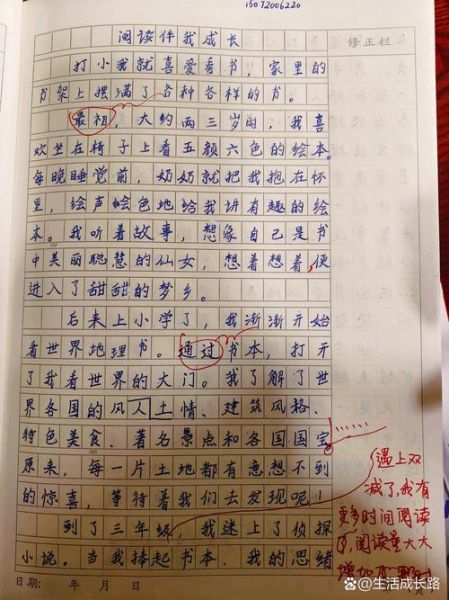 15072006220
阅读伴我成长
修正栏
打小我就喜爱看书，家里的
书架上摆满了各种各样的书。
最初，大约两三岁时，我喜
欢坐在椅子上看五颜六色的绘本。
每晚睡觉前，奶奶就把我抱在怀
里，绘声绘色地给我讲有趣的绘
本。我听着故事，想象自己是书
中美丽聪慧的仙女，想着想着，便
进入了甜甜的梦乡。
后来上小学了，我渐渐开始
看世界地理书。通过书本，打开
了我看世界的大门。我了解了世
界各国的风人土情、建筑风格、
特色美食、著名景点和各国国宝……
原来，每一片土地都有意想不到
的惊喜，等待着我们去发现呢！
到了三年级，我迷上了侦探
小说。当我捧起书本，我的思绪
遇上双
减了，我有
更多时间阅读
了，阅读量大大
增加了
日期： 年 月 日
@生活成长路